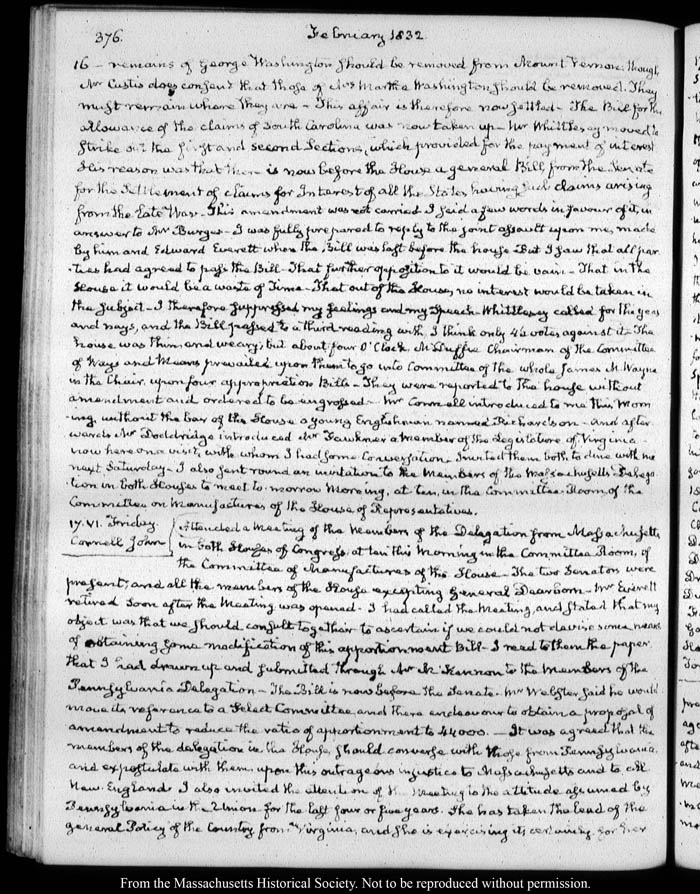 376.
February 1832
16 – remains of George Washington should be removed from Mount Vernon, though
Mr Custis does consent that those of Mrs Martha Washington should be removed. They
must remain where they are – This affair is therefore now settled – The Bill for the
allowance of the claims of South Carolina was now taken up – Mr Whittlesey moved to
strike out the first and second Sections, which provided for the payment of interest
His reason was that there is now before the House a general Bill, from the Senate
for the settlement of claims for Interest of all the States having such claims arising
from the late War – This amendment was not carried I said a few words in favour of it, in
answer to Mr Burges – I was fully prepared to reply to the joint assault upon me, made
by him and Edward Everett when the Bill was last before the house But I saw that all par
ties had agreed to pass the Bill – That further opposition to it would be vain – That in the
House it would be a waste of Time – That out of the House, no interest would be taken in
the subject – I therefore suppressed my feelings and my Speech – Whittlesey called for the yeas
and nays, and the Bill passed to a third reading with I think only 42 votes against it – The
house was thin and weary; but about four O'Clock, McDuffie Chairman of the Committee
of Ways and Means prevailed upon them to go into Committee of the whole, James M. Wayne
in the Chair, upon four appropriation Bills – They were reported to the house without
amendment and ordered to be engrossed – Mr Connell introduced to me this Morn
ing, without the bar of the House a young Englishman named Richardson – And after
wards Mr Doddridge introduced Mr Fawkner a member of the Legislature of Virginia
now here on a visit, with whom I had some Conversation. Invited them both to dine with me
next Saturday – I also sent round an invitation to the Members of the Massachusetts Delega
tion in both Houses to meet to-morrow Morning, at ten, in the Committee Room of the
Committee on Manufactures of the House of Representatives.
17. VI. Friday
Connell John
Attended a Meeting of the Members of the Delegation from Massachusetts
in both Houses of Congress, at ten this Morning in the Committee Room, of
the Committee of Manufactures of the House – The two Senators were
present, and all the members of the House excepting General Dearborn – Mr Everett
retired soon after the Meeting was opened – I had called the Meeting, and stated that my
object was that we should consult together to ascertain if we could not devise some means
of obtaining some modification of this apportionment Bill – I read to them the paper
that I had drawn up and submitted through Mr McKennon to the Members of the
Pennsylvania Delegation – The Bill is now before the Senate – Mr Webster said he would
move its reference to a Select Committee and there endeavour to obtain a proposal of
amendment to reduce the ratio of apportionment to 44000. – It was agreed that the
members of the delegation in the House, should converse with those from Pennsylvania,
and expostulate with them upon this outrageous injustice to Massachusetts and to all
New-England I also invited the attention of the Meeting to the attitude assumed by
Pennsylvania in the Union for the last four or five years. She has taken the lead of the
general Policy of the Country from Virginia, and she is exercising its for her
From the Massachusetts Historical Society. Not to be reproduced without permission.